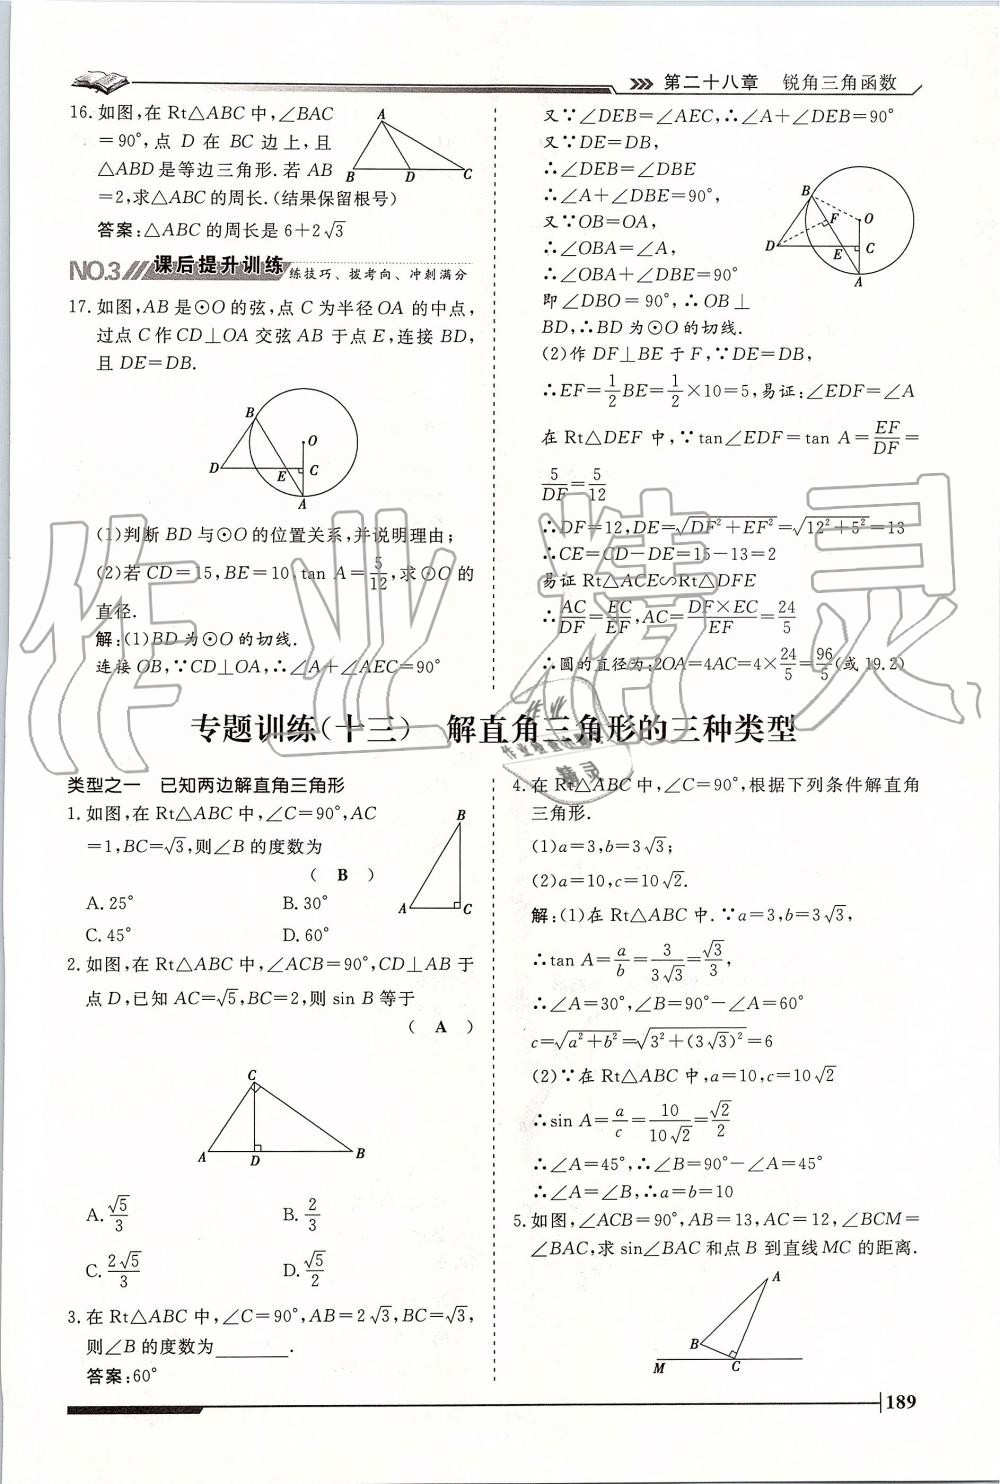 第二十八章 锐角三角函数
16. 如图,在 Rt△ABC 中,∠BAC
=90°,点 D 在 BC 边上,且
△ABD是等边三角形.若 AB
=2,求△ABC的周长.(结果保留根号)
A
B D C
答案:△ABC 的周长是 6+2√3
NO.3 课后提升训练 练技巧、拔考向、冲刺满分
17. 如图,AB 是⊙O 的弦,点 C 为半径 OA 的中点,
过点 C 作 CD⊥OA 交弦 AB 于点 E,连接 BD,
且 DE=DB.
B
O
D E C
A
(1)判断 BD 与⊙O 的位置关系,并说明理由;
(2)若 CD=15,BE=10,tan A=5/12,求⊙O 的
直径.
解:(1)BD 为⊙O 的切线.
连接 OB,∵CD⊥OA,∴∠A+∠AEC=90°
又∵∠DEB=∠AEC,∴∠A+∠DEB=90°
又∵DE=DB,
∴∠DEB=∠DBE
∴∠A+∠DBE=90°,
又∵OB=OA,
∴∠OBA=∠A,
∴∠OBA+∠DBE=90°
即∠DBO = 90°,∴ OB⊥
BD,∴BD 为⊙O 的切线.
B
F O
D E C
A
(2)作 DF⊥BE 于 F,∵DE=DB,
∴EF=1/2BE=1/2×10=5,易证:∠EDF=∠A
在 Rt△DEF 中,∵tan∠EDF=tan A=EF/DF=
5/DF=5/12
∴DF=12,DE=√(DF²+EF²)=√(12²+5²)=13
∴CE=CD-DE=15-13=2
易证 Rt△ACE∽Rt△DFE
∴AC/DF=EC/EF,AC=DF×EC/EF=24/5
∴圆的直径为:2OA=4AC=4×24/5=96/5(或 19.2)
专题训练(十三) 解直角三角形的三种类型
类型之一 已知两边解直角三角形
1. 如图,在 Rt△ABC 中,∠C=90°,AC
=1,BC=√3,则∠B 的度数为
( B )
A. 25° B. 30°
C. 45° D. 60°
B
A C
2. 如图,在 Rt△ABC 中,∠ACB=90°,CD⊥AB 于
点 D,已知 AC=√5,BC=2,则 sin B 等于
( A )
C
A D B
A. √5/3 B. 2/3
C. 2√5/3 D. √5/2
3. 在 Rt△ABC 中,∠C=90°,AB=2√3,BC=√3,
则∠B 的度数为________.
答案:60°
4. 在 Rt△ABC 中,∠C=90°,根据下列条件解直角
三角形.
(1)a=3,b=3√3;
(2)a=10,c=10√2.
解:(1)在 Rt△ABC 中.∵a=3,b=3√3,
∴tan A=a/b=3/3√3=√3/3,
∴∠A=30°,∠B=90°-∠A=60°
c=√(a²+b²)=√(3²+(3√3)²)=6
(2)∵在 Rt△ABC 中,a=10,c=10√2
∴sin A=a/c=10/10√2=√2/2
∴∠A=45°,∴∠B=90°-∠A=45°
∴∠A=∠B,∴a=b=10
5. 如图,∠ACB=90°,AB=13,AC=12,∠BCM=
∠BAC,求 sin∠BAC 和点 B 到直线MC 的距离.
A
B
M C
189
作业精灵
作业
作业检查小精灵
精灵